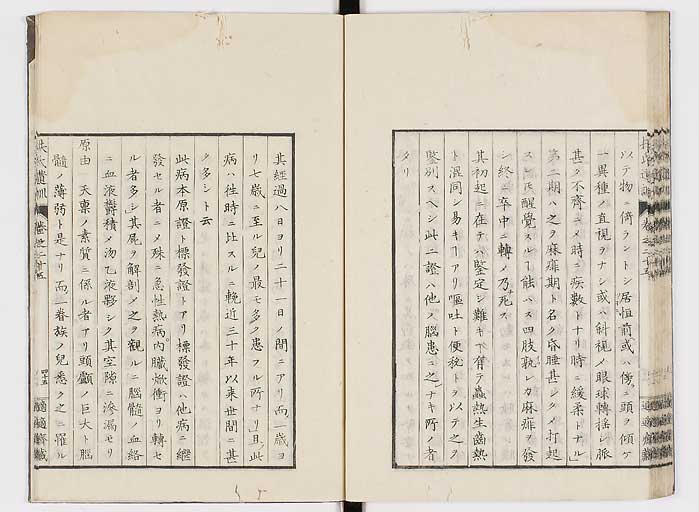 以テ物ニ倚ラントシ居恒前或ハ傍ニ頭ヲ傾ケ
一異種ノ直視ヲナシ或ハ斜視メ眼球轉揺シ脈
甚タ不齊ニメ時ニ疾數トナリ時ニ緩柔トナル
第二期ハ之ヲ麻痱期ト名ク昏睡甚シクメ打起
スレ𪜈醒覺スルー能ハス四肢孰レカ麻痱ヲ發
シ終ニ卒中ニ轉メ乃死ス
其初起ニ在テハ鑒定シ難キ下有テ蟲熱生齒熱
ト混同シ易キーアリ嘔吐ト便秘トヲ以テ之ヲ
鑒別スヘシ此二證ハ他ノ腦患ニ之ナキ所ノ者
タリ
其經過八日ヨリ二十一日ノ間ニアリ而一歳ヨ
リ七歳ニ至ル兒ノ最モ多ク患フル所ナリ且此
病ハ往時ニ比スルニ輓近三十年以来世間ニ甚
タ多シト云
此病本原證ト標發證トアリ標發證ハ他病ニ繼
發セル者ニメ殊ニ急性熱病内臟焮衝ヨリ轉セ
ル者多シ其屍ヲ解剖メ之ヲ觀ルニ腦髓ノ血絡
ニ血液欝積メ汤乙液夥シク其空隙ニ滲漏セリ
原由 天禀ノ素質ニ係ル者アリ頭顱ノ巨大ト腦
髓ノ薄弱ト是ナリ而一眷族ノ兒悉ク之ニ罹ル
扶氏遺訓 卷之二十五
四十五
適適齋藏